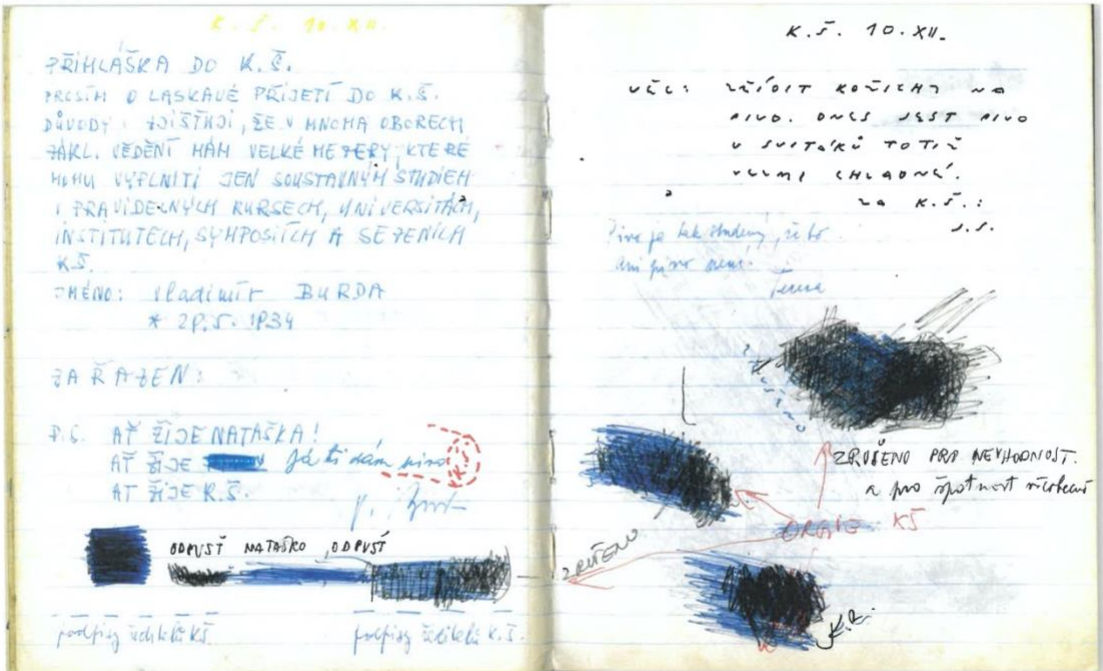 K.Š. 10.XII.
PŘIHLÁŠKA DO K.Š.
PROSÍM O LASKAVÉ PŘIJETÍ DO K.Š.
DŮVODY: ZJIŠŤUJI, ŽE V MNOHA OBORECH
ZÁKL. VĚDĚNÍ MÁM VELKÉ MEZERY, KTERÉ
MOHU VYPLNITI JEN SOUSTAVNÝM STUDIEM
PRAVIDELNÝCH KURSECH, UNIVERSITÁCH,
INSTITUTECH, SYMPOSIÍCH A SEZENÍCH
K.Š.
JMÉNO: Vladimír BURDA
ZAŘAZEN:
P.S. AŤ ŽIJE NATAŠKA!
AŤ ŽIJE Já ti dám pivo K.Š.
AŤ ŽIJE K.Š.
ODPUSŤ NATAŠKO, ODPUSŤ
podpisy ředitelů KŠ podpisy ředitelů K.Š.
K.Š. 10.XII.
VĚC: KOŽICHY NA
PIVO. DNES JEST PIVO
U SVITÁKŮ TOTIŽ
VELMI CHLADNÉ.
ZA K.Š.:
J.S.
Pivo je tak studený, že to
ani pivo není.
ZRUŠENO
ZRUŠENO PRO NEVHODNOST.
a pro špatnost všeobecně
ORGIE KŠ
ZRUŠENO